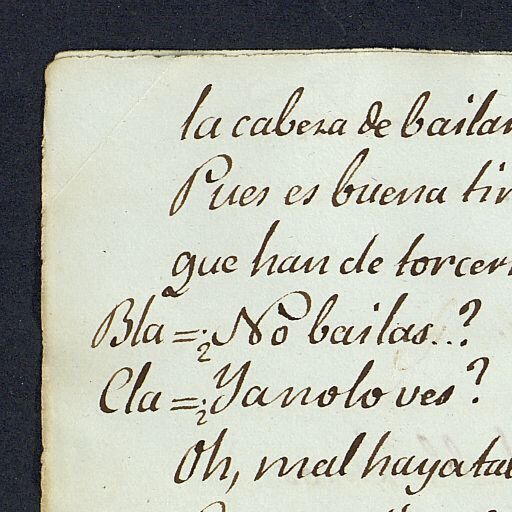 la cabeza de bailar
Pues es buena tir
que han de torcer
Bla=¿No bailas...?
Cla=¿Ya no lo ves?
Oh, mal haya tal